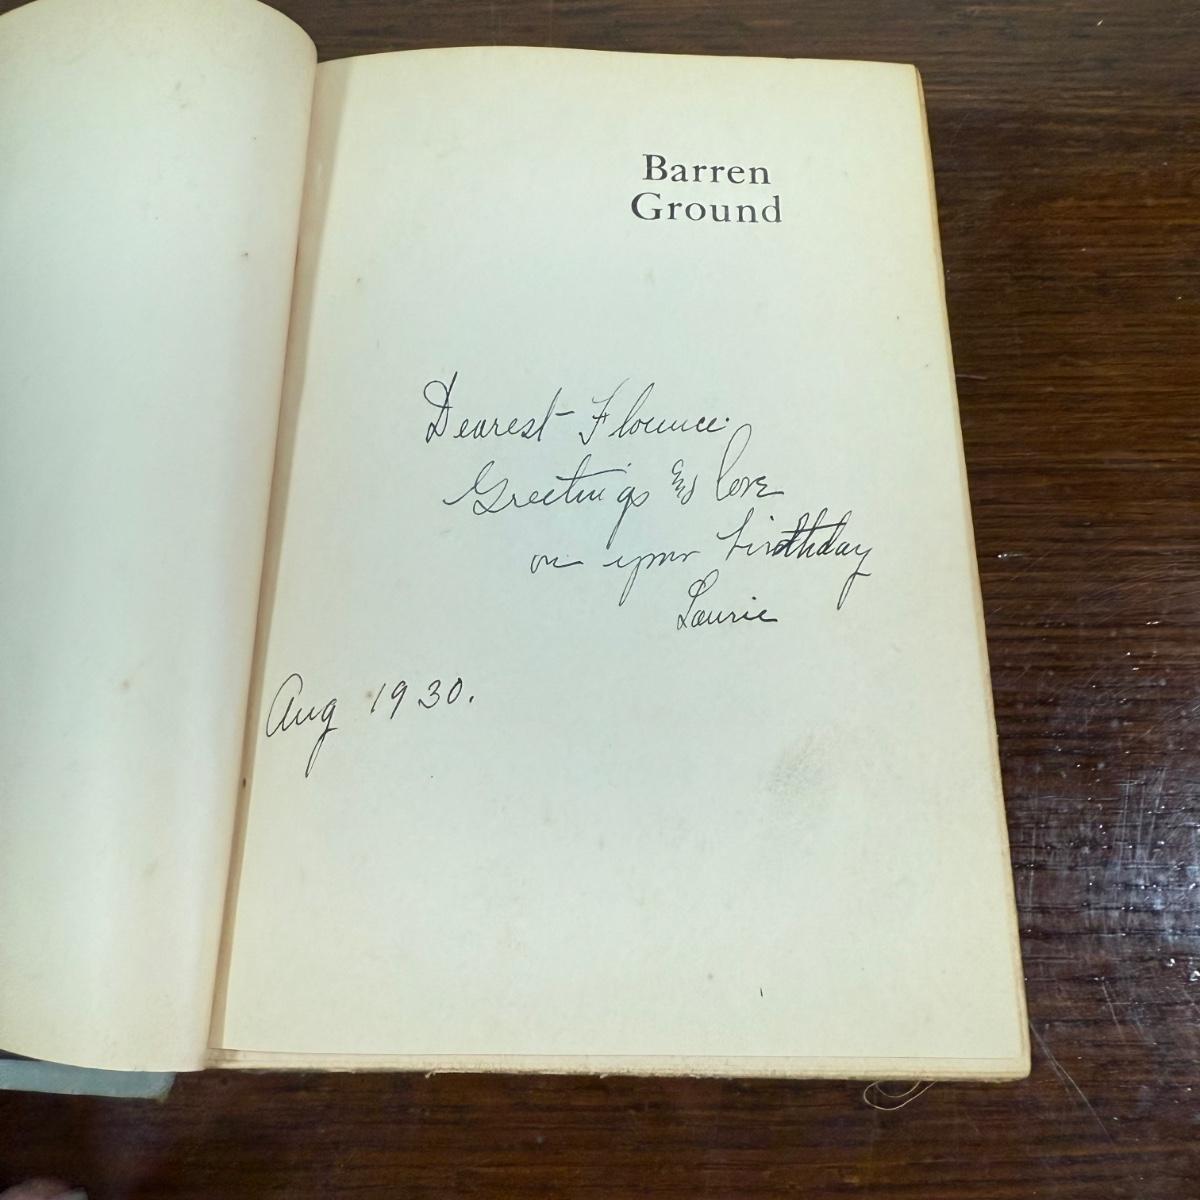 Barren
Ground
Dearest Florence.
Greetings and love
on your birthday
Laurie
Aug 1930.